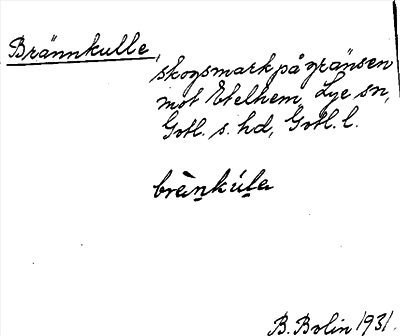 Brännkulle,
skogsmark på gränsen
mot Etelhem, Lye sn,
Gotl. s. hd, Gotl. l.
brènkúla
B. Bolin 1931.